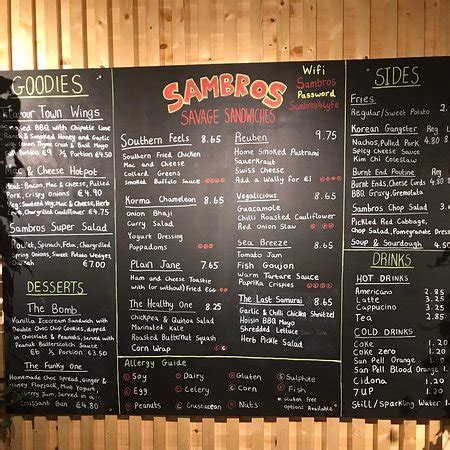 GOODIES
Flavour Town Wings
Smoked BBQ with Chipotle Lime
Ranch & Smoked Honey and Garlic
with Thyme Crust & Basil Mayo
Portion €9 ½ Portion €4.50
Mac & Cheese Hotpot
Meat: Bacon, Mac & Cheese, Pulled
Pork, Crispy Onions €4.90
Veg: Mac & Cheese, Herb
Chargrilled Cauliflower €4.75
Sambros Super Salad
Spinach, Feta, Chargrilled
Spring Onions, Sweet Potato Wedges,
€7.00
DESSERTS
The Bomb
Vanilla Icecream Sandwich with
Double Choc Chip Cookies, dipped
in Chocolate & Peanuts, served with
Peanut Butterscotch Sauce
€6 ½ Portion €3.50
The Funky One
Homemade Choc Spread, Ginger &
Honey Flapjack, Malt Yogurt,
Cherry Jam, Served in a
Croissant Bun €4.80
SAMBROS
SAVAGE SANDWICHES
Wifi
Sambros
Password
Sambros4lyfe
Southern Feels 8.65
Southern Fried Chicken
Mac and Cheese
Collard Greens
Smoked Buffalo Sauce
Korma Chameleon 8.65
Onion Bhaji
Curry Salad
Yogurt Dressing
Poppadoms
Plain Jane 7.65
Ham and Cheese Toastie
with (or without) Fried Egg
The Healthy One 8.10
Chickpea & Quinoa Salad
Marinated Kale
Roasted Butternut Squash
Corn Wrap
Reuben 9.75
Home Smoked Pastrami
Sauerkraut
Swiss Cheese
Add a Wally for €1
Vegalicious 8.65
Guacamole
Chilli Roasted Cauliflower
Red Onion Slaw
Sea Breeze 8.65
Tomato Jam
Fish Goujon
Warm Tartare Sauce
Paprika Crisps
The Last Samurai 8.65
Garlic & Chilli Chicken Shnitzel
Hoisin BBQ Mayo
Shredded Lettuce
Herb Pickle Salad
Allergy Guide
Soy
Dairy
Gluten
Sulphite
Egg
Celery
Sesame
Fish
Peanuts
Crustacean
Nuts
Gluten free
options Available
SIDES
Fries
Regular/Sweet Potato
Korean Gangster Reg
Nachos, Pulled Pork
Spicy Cheese Sauce
Kim Chi Coleslaw
Burnt End Poutine Reg
Burnt Ends, Cheese Curds
BBQ Gravy, Gremolata
Sambros Chop Salad
Pickled Red Cabbage,
Chop Salad, Pomegranate
Soup & Sourdough
DRINKS
HOT DRINKS
Americano 2.85
Latte 3.25
Cappucino 3.25
Tea 2.85
COLD DRINKS
Coke 1.20
Coke zero 1.20
San Pell Orange
San Pell Blood Orange
Cidona 1.20
7UP 1.20
Still/Sparkling Water